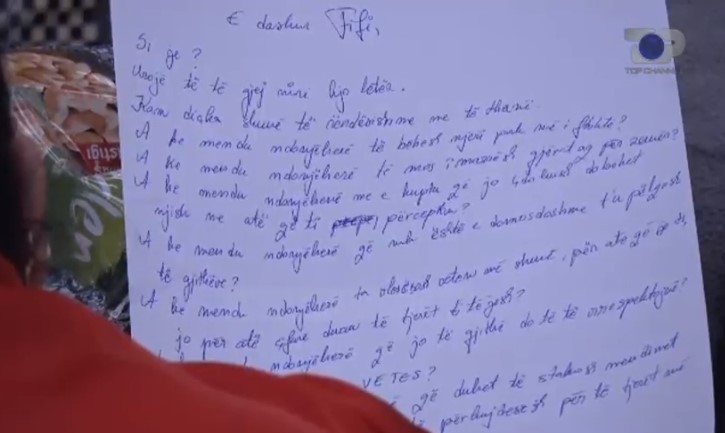 E dashur Fifi,
Si je?
Uroj të të gjej mirë kjo letër.
Kam diçka shumë të rëndësishme me të thanë.
A ke mendu ndonjëherë të bëhesh njeri pak më i
A ke mendu ndonjëherë të mos i marrësh gjërat aq për zemër?
A ke mendu ndonjëherë me e kuptu që jo do bëhet
njisoj me atë që ti perceptu?
A ke mendu ndonjëherë që nuk është e domosdoshme t'u pëlqesh
të gjithëve?
A ke mendu ndonjëherë ta vlerësosh veten më shumë, për atë që je ti,
jo për atë çfarë duan të tjerët të jesh?
ndonjëherë që jo të gjithë do të të respektojnë?
VETES?
që duhet të mendimet
për të tjerët më
TOP CHANNEL
stigi